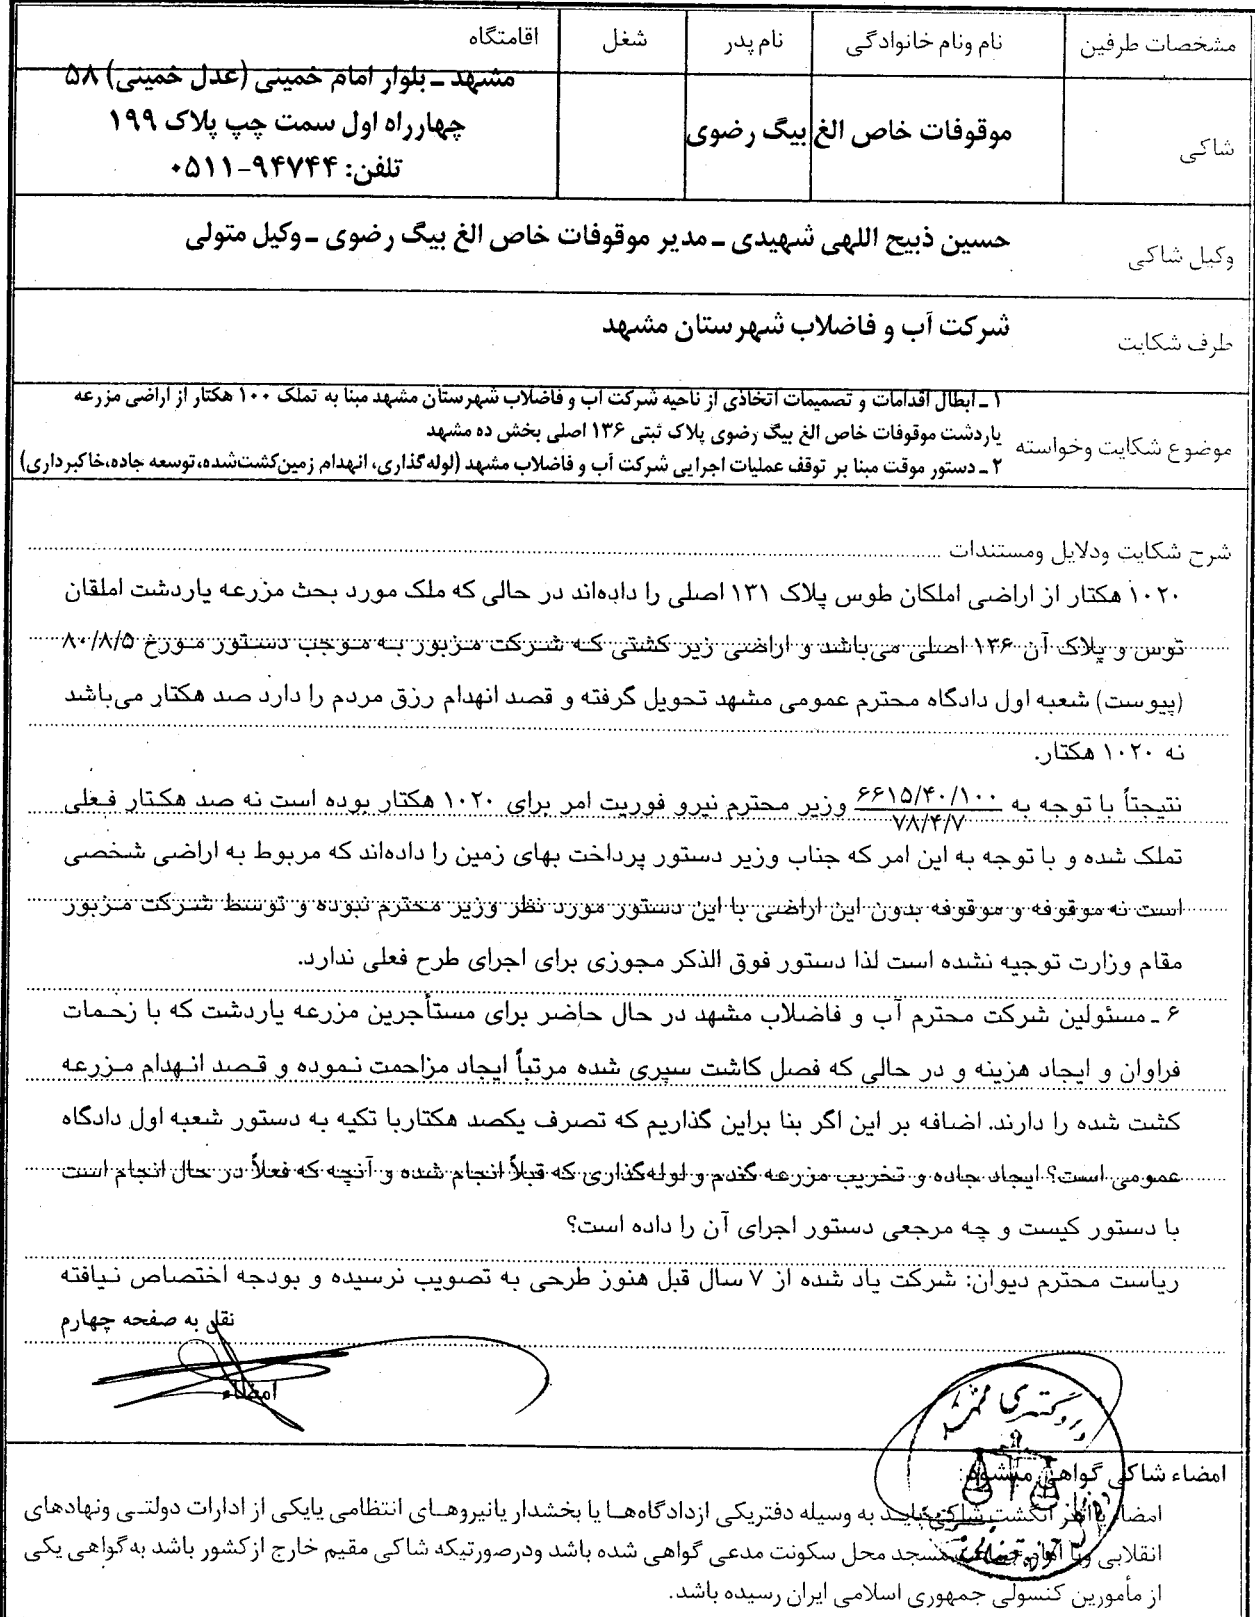 مشخصات طرفین نام ونام خانوادگی نام پدر شغل اقامتگاه
شاکی موقوفات خاص الغ بیگ رضوی
مشهد ـ بلوار امام خمینی (عدل خمینی) ۵۸
چهارراه اول سمت چپ پلاک ۱۹۹
تلفن: ۹۴۷۴۴-۰۵۱۱
وکیل شاکی حسین ذبیح اللهی شهیدی ـ مدیر موقوفات خاص الغ بیگ رضوی ـ وکیل متولی
طرف شکایت شرکت آب و فاضلاب شهرستان مشهد
موضوع شکایت وخواسته
۱ ـ ابطال اقدامات و تصمیمات اتخاذی از ناحیه شرکت آب و فاضلاب شهرستان مشهد مبنا به تملک ۱۰۰ هکتار از اراضی مزرعه
یاردشت موقوفات خاص الغ بیگ رضوی پلاک ثبتی ۱۳۶ اصلی بخش ده مشهد
۲ ـ دستور موقت مبنا بر توقف عملیات اجرایی شرکت آب و فاضلاب مشهد (لوله‌گذاری، انهدام زمین‌کشت‌شده،توسعه جاده،خاکبرداری)
شرح شکایت ودلایل ومستندات
۱۰۲۰ هکتار از اراضی املکان طوس پلاک ۱۳۱ اصلی را داده‌اند در حالی که ملک مورد بحث مزرعه یاردشت املقان
توس و پلاک آن ۱۳۶ اصلی می‌باشد و اراضی زیر کشتی که شرکت مزبور به موجب دستور مورخ ۸۰/۸/۵
(پیوست) شعبه اول دادگاه محترم عمومی مشهد تحویل گرفته و قصد انهدام رزق مردم را دارد صد هکتار می‌باشد
نه ۱۰۲۰ هکتار.
نتیجتاً با توجه به ۶۶۱۵/۴۰/۱۰۰ وزیر محترم نیرو فوریت امر برای ۱۰۲۰ هکتار بوده است نه صد هکتار فعلی
۷۸/۴/۷
تملک شده و با توجه به این امر که جناب وزیر دستور پرداخت بهای زمین را داده‌اند که مربوط به اراضی شخصی
است نه موقوفه و موقوفه بدون این اراضی با این دستور مورد نظر وزیر محترم نبوده و توسط شرکت مزبور
مقام وزارت توجیه نشده است لذا دستور فوق الذکر مجوزی برای اجرای طرح فعلی ندارد.
۶ ـ مسئولین شرکت محترم آب و فاضلاب مشهد در حال حاضر برای مستأجرین مزرعه یاردشت که با زحمات
فراوان و ایجاد هزینه و در حالی که فصل کاشت سپری شده مرتباً ایجاد مزاحمت نموده و قصد انهدام مزرعه
کشت شده را دارند. اضافه بر این اگر بنا براین گذاریم که تصرف یکصد هکتاربا تکیه به دستور شعبه اول دادگاه
عمومی است؟ ایجاد جاده و تخریب مزرعه گندم و لوله‌گذاری که قبلاً انجام شده و آنچه که فعلاً در حال انجام است
با دستور کیست و چه مرجعی دستور اجرای آن را داده است؟
ریاست محترم دیوان: شرکت یاد شده از ۷ سال قبل هنوز طرحی به تصویب نرسیده و بودجه اختصاص نیافته
نقل به صفحه چهارم
امضاء
امضاء شاکی گواهی میشود:
امضاء یا اثر انگشت شاکی باید به وسیله دفتریکی ازدادگاه‌ها یا بخشدار یانیروهای انتظامی یایکی از ادارات دولتی ونهادهای
انقلابی ویا امام جماعت مسجد محل سکونت مدعی گواهی شده باشد ودرصورتیکه شاکی مقیم خارج ازکشور باشد به‌گواهی یکی
از مأمورین کنسولی جمهوری اسلامی ایران رسیده باشد.